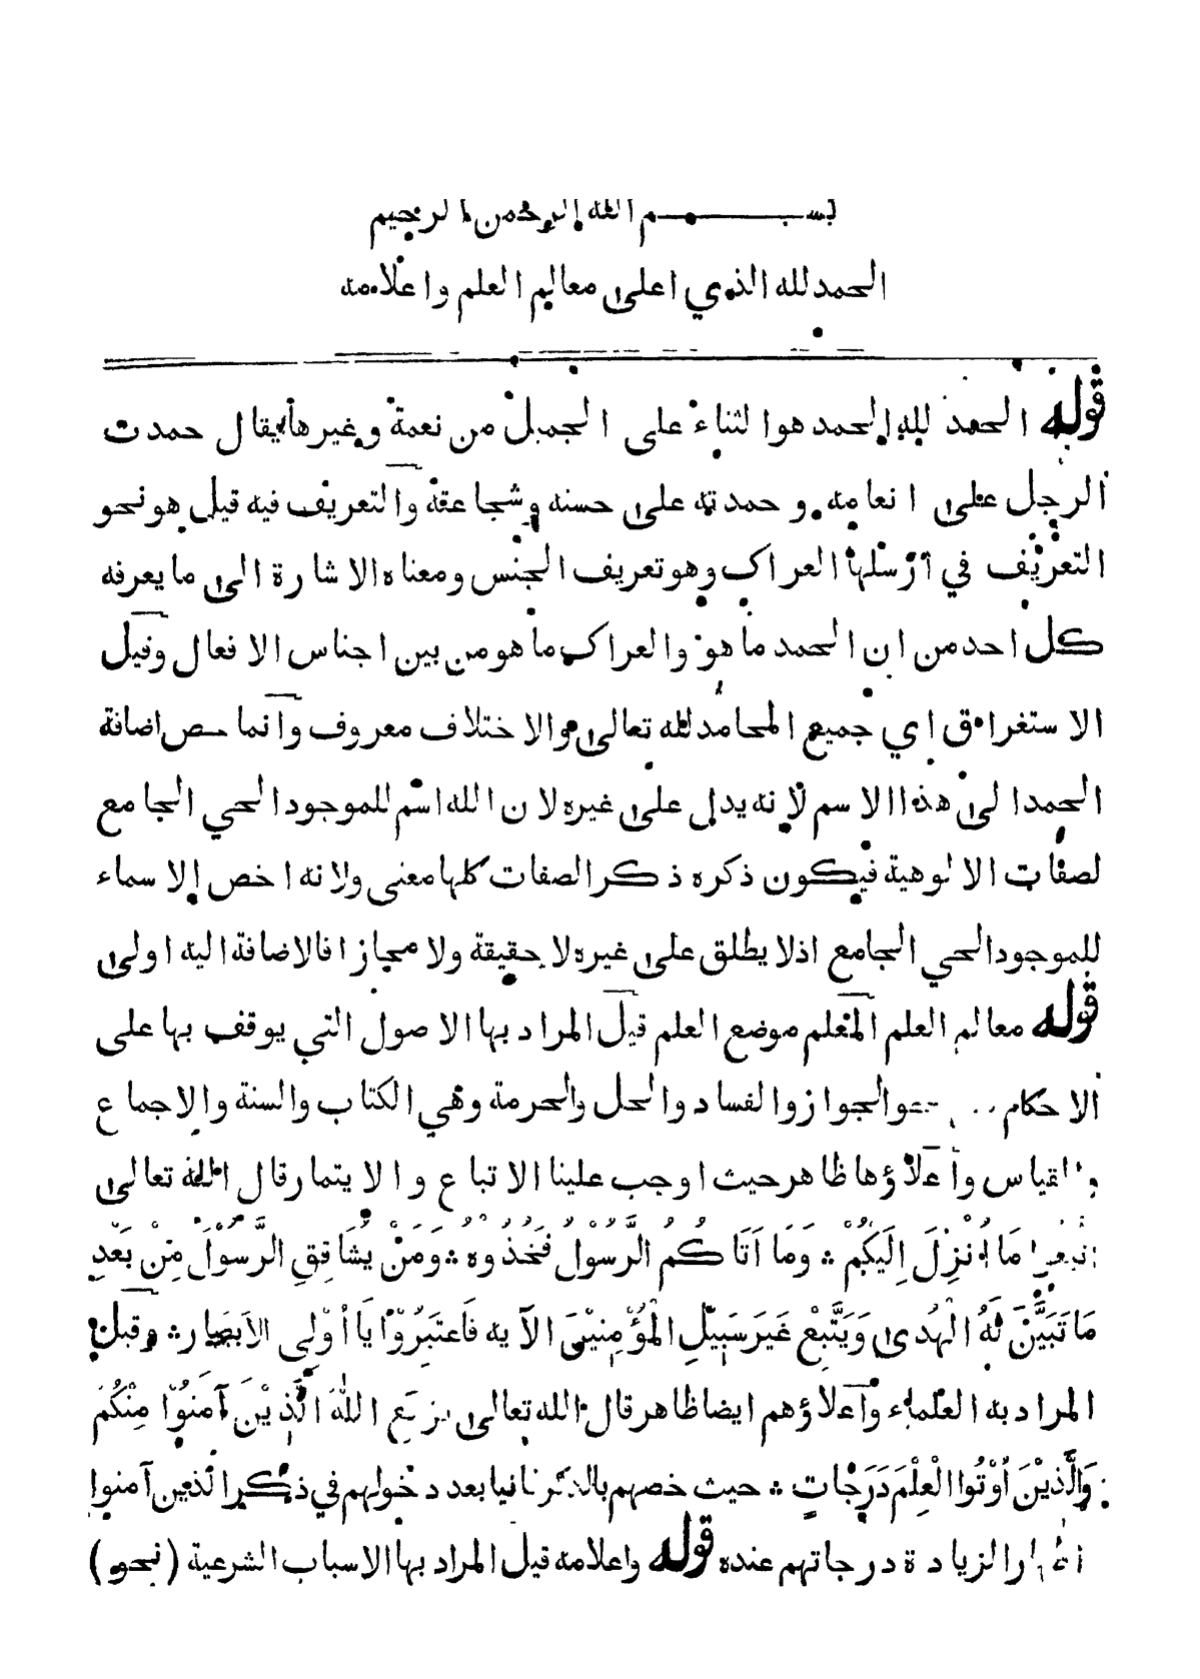 بسم الله الرحمن الرحيم
الحمد لله الذي اعلى معالم العلم واعلامه
قوله الحمد لله الحمد هوا لثناء على الجميل من نعمة وغيرها يقال حمدت
الرجل على انعامه وحمدته على حسنه وشجاعته والتعريف فيه قيل هو نحو
التعريف في ارسلها العراك وهو تعريف الجنس ومعناه الاشارة الى ما يعرفه
كل احد من ان الحمد ما هو والعراك ما هو من بين اجناس الافعال وقيل
الاستغراق اي جميع المحامد لله تعالى والاختلاف معروف وانما خص اضافة
الحمد الى هذا الاسم لانه يدل على غيره لان الله اسم للموجود الحي الجامع
لصفات الالوهية فيكون ذكره ذكر الصفات كلها معنى ولانه اخص الاسماء
للموجود الحي الجامع اذ لا يطلق على غيره لا حقيقة ولا مجازا فالاضافة اليه اولى
قوله معالم العلم المعلم موضع العلم قيل المراد بها الاصول التي يوقف بها على
الاحكام والجواز والفساد والحل والحرمة وهي الكتاب والسنة والاجماع
والقياس واعلاؤها ظاهر حيث اوجب علينا الاتباع والايتمار قال الله تعالى
اتبعوا مَا اُنْزِلَ اِلَيكُم ؞ وَمَا اَتَاكُمُ الرَّسُولُ فَخُذُوه ؞ وَمَنْ يُشَاقِقِ الرَّسُوْلَ مِنْ بَعْدِ
مَا تَبَيَّنَ لَهُ الْهُدى وَيَتَّبِعْ غَيرَ سَبِيْلِ الْمُؤْمِنِيْنَ الآيه فَاعتَبِرُوْا يَا اُوْلِى الاَبصَار ؞ وقيل
المراد به العلماء واعلاؤهم ايضا ظاهر قال الله تعالى يرفع اللهُ الَّذِيْنَ آمَنُوْا مِنْكُمْ
وَالَّذِيْنَ اُوْتُوا الْعِلْمَ دَرَجَاتٍ ؞ حيث خصهم بالذكر ثانيا بعد دخولهم في ذكر الذين آمنوا
الزيادة درجاتهم عنده قوله واعلامه قيل المراد بها الاسباب الشرعية (نحو)